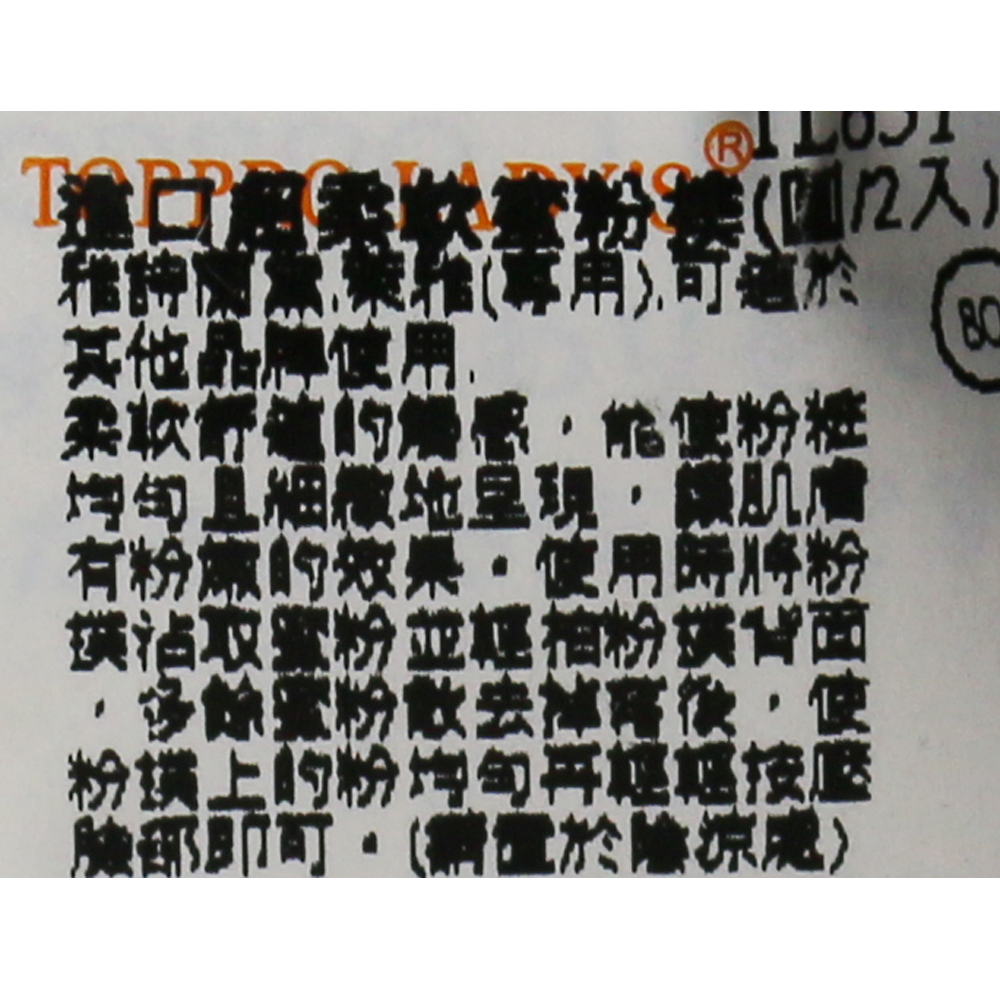 TOPPRO LADY'S®
TL651
進口超柔軟蜜粉撲(圓/2入)
雅詩蘭黛.萊雅(專用).可適於
其他品牌使用.
80
柔軟舒纖的膚感,能使粉粧
均勻且細緻地呈現,讓肌膚
立粉嫩的效果。使用時將粉
撲沾取蜜粉且輕拍粉撲正面
,多餘蜜粉散出後,使
粉撲上的粉均勻再輕輕按壓
臉部即可。(需置於陰涼處)